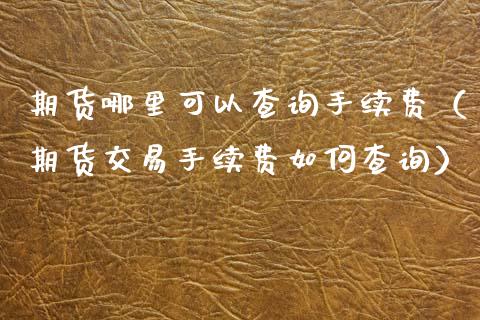 期货哪里可以查询手续费（
期货交易手续费如何查询）